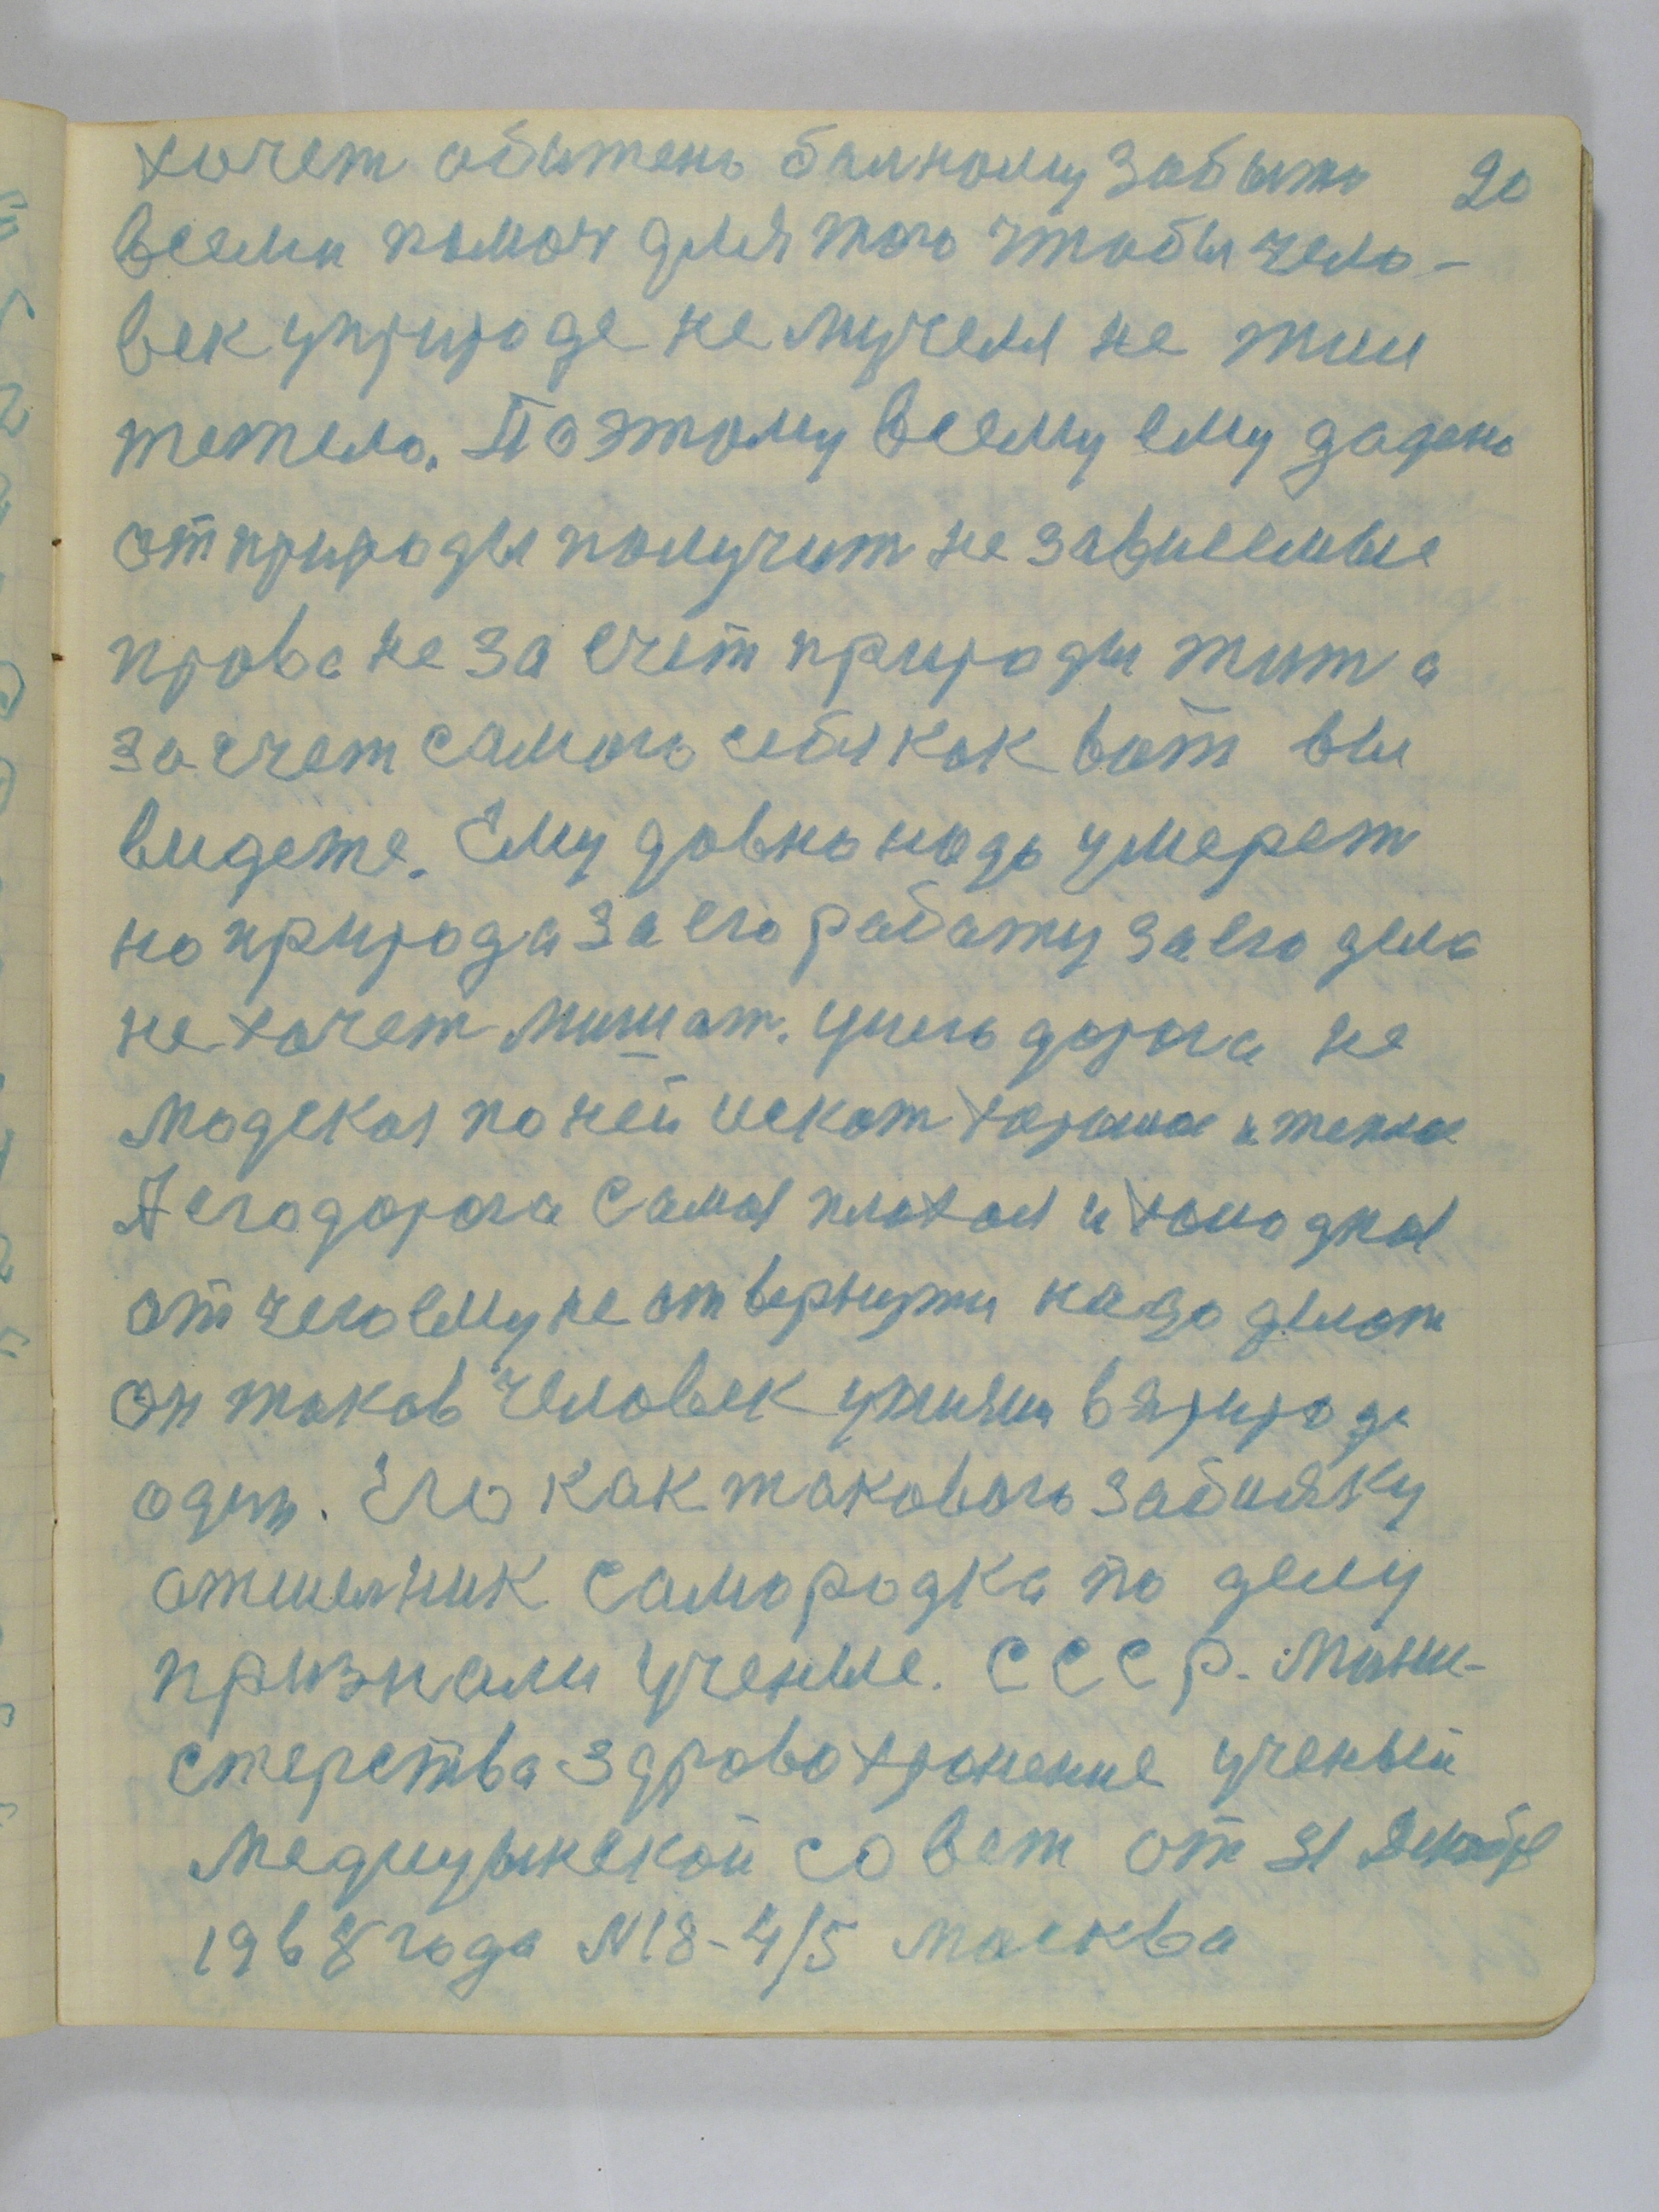 хочет обытень балному забыто 20
всеми помоч для того чтобы чело-
век уприроде не мучеля не жил
тежело. Поэтому всему ему дадено
от природы получит не зависемые
права не за счет природы жит а
за счет самого себя как вот вы
видете. Ему давно надо умерет
но природа за его работу за его дело
не хочет мишат. унего дорога не
людская по ней искат хараша и тепла
А его дорога самая плахая и холодная
от чего ему не отвернутя надо делат
он таков человек ужизни в природе
один. Его как таковаго забияку
отшелник самородка по делу
признали ученые. СССР. Мини-
стерства здровохронение ученый
медицынской совет от 31 Декабря
1968 года N18-4/5 Масква